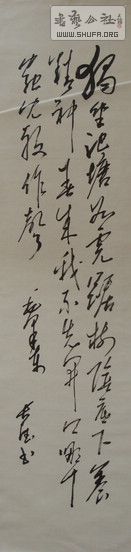 書藝公社
WWW.SHUFA.ORG
独坐池塘如虎踞树阴底下养
精神春来我不先开口哪个
虫儿敢作声
书